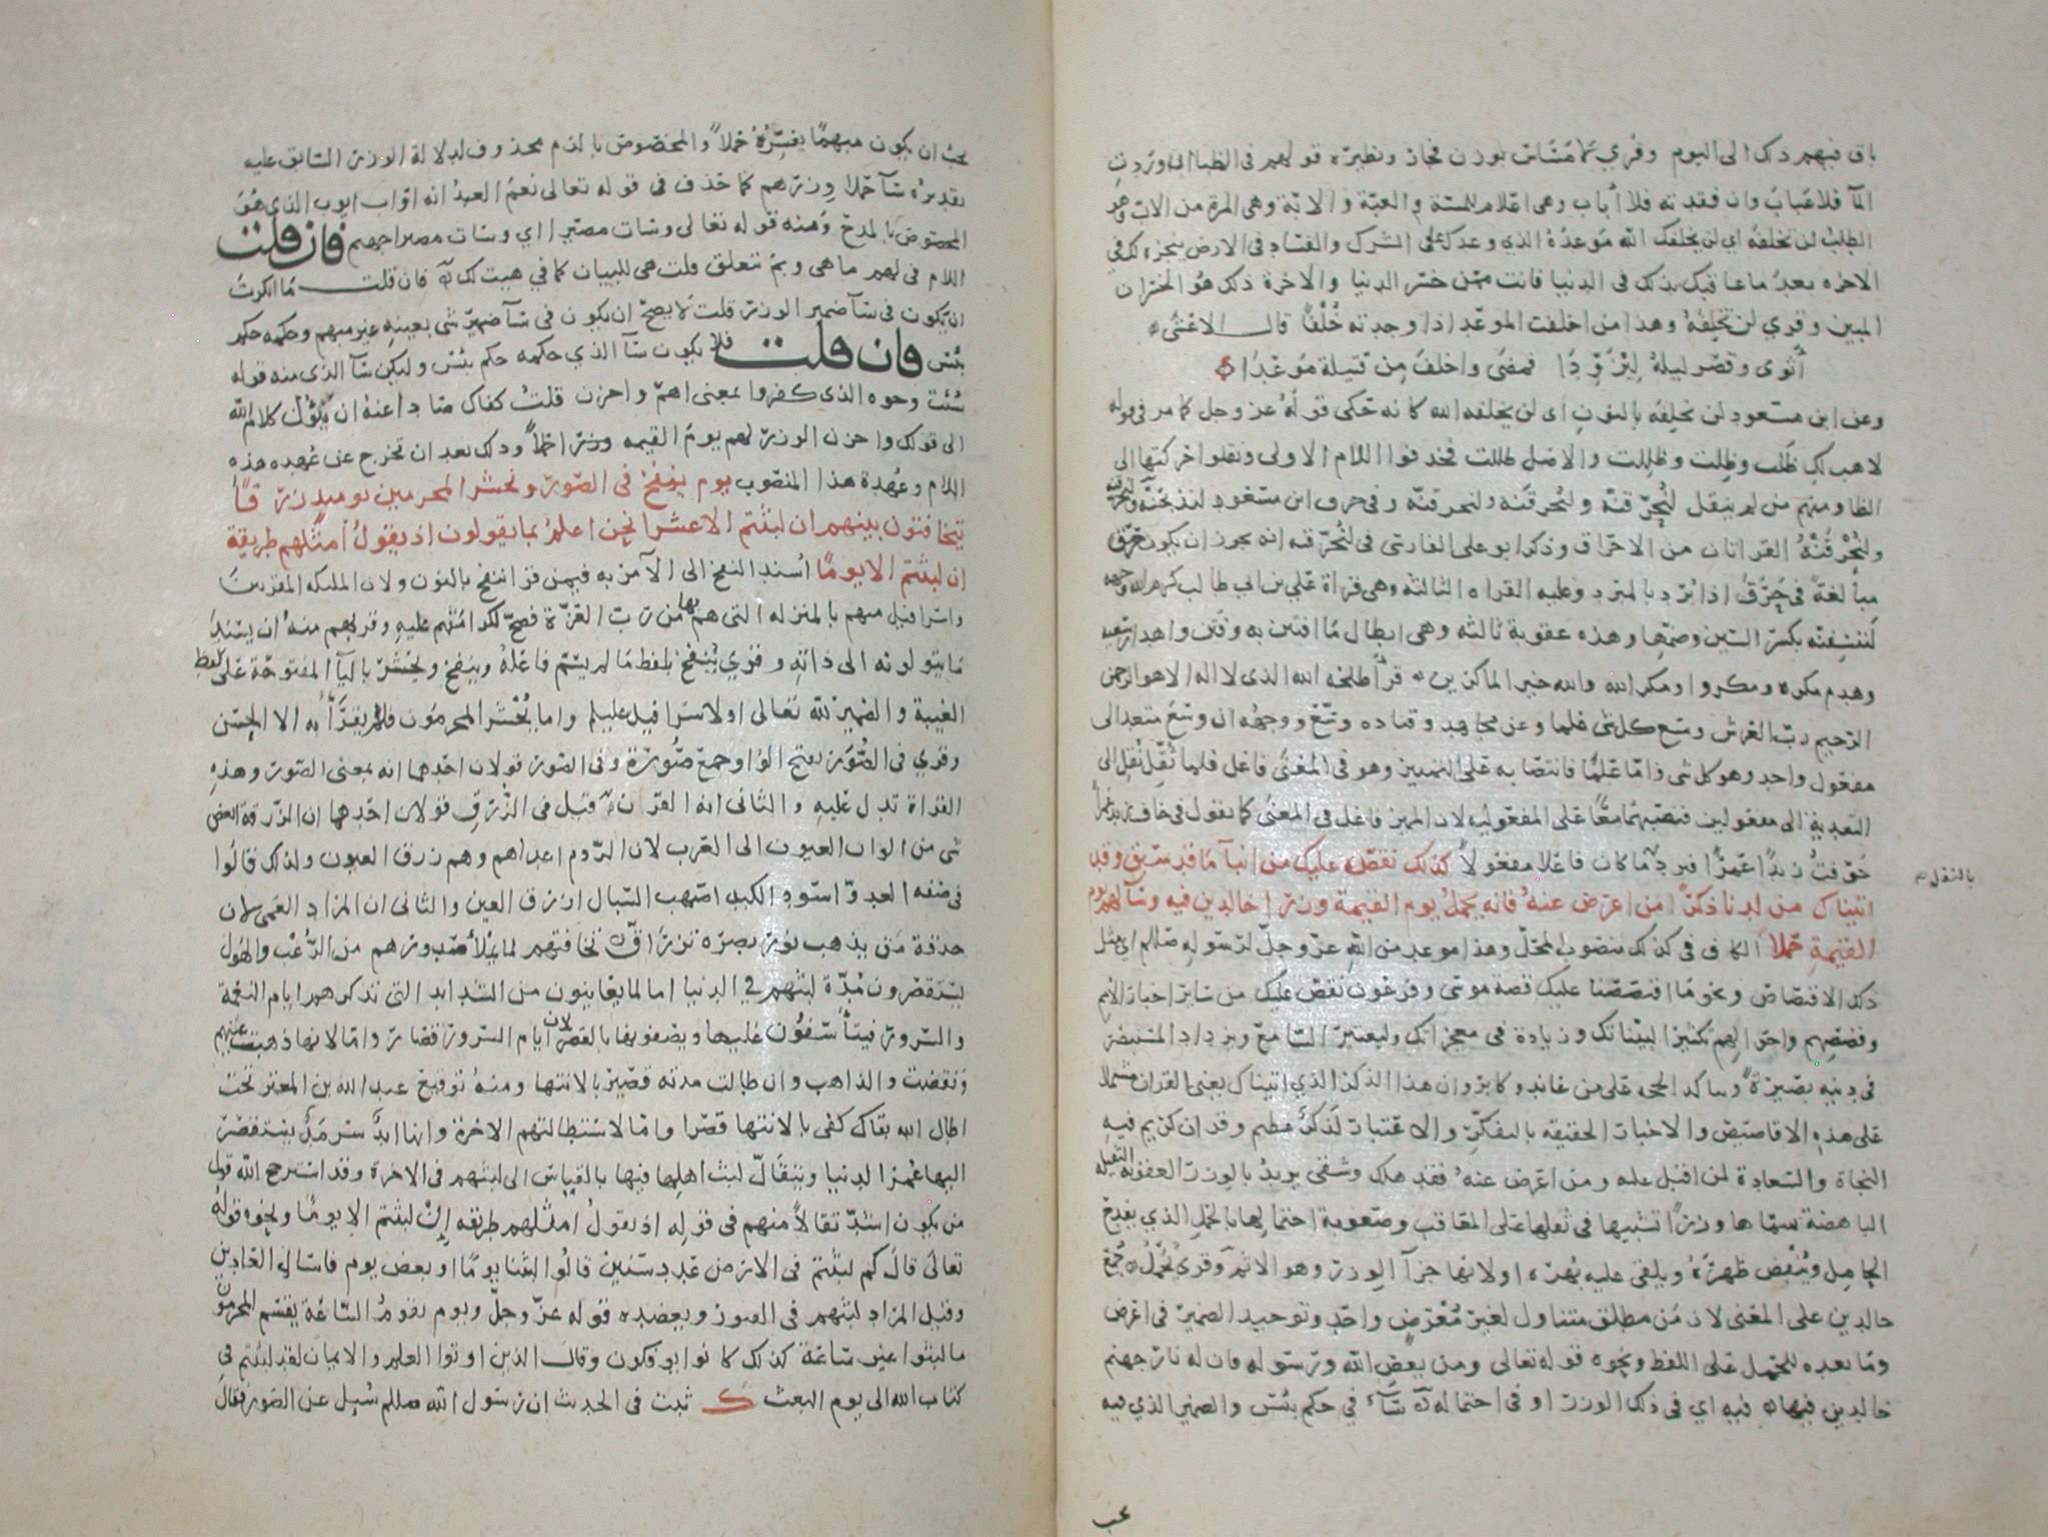 باق فيهم ذلك الى اليوم وقري لا مَسَاسِ بوزن فجار ونظيره قولهم في الظباء ان وردت
الماء فلا عباب وان فقدته فلا أباب وهي اعلام للمسة والعبة والابّة وهي المرة من الاب وهو
الطلب لن تخلفه اي لن يخلفك الله مَوعدَهُ الذي وعدك على الشرك والفساد في الارض ينجزه لك في
الاخره بعد ما عاقبك بذلك في الدنيا فانت ممن خسر الدنيا والآخرة ذلك هو الخسران
المبين وقري لن نُخلِفهُ وهذا من اخلفت الموعد اذا وجدته خُلْفاً قال الاعشى
أثوى وقصّر ليلهُ لِيُزَوَّدا فمضى واخلفَ مِن قتيلة مَوعدا
وعن ابن مسعود لن نخلفه بالنون اى لن يخلفه الله كانه حكى قولهُ عز وجل كما مر في قوله
لاهب لك ظَلت وظِلت وظللت والاصل ظللت فحذفوا اللام الاولى ونقلوا حركتها الى
الظا ومنهم من لم ينقل لنُحرّقنّه ولنُحرقنّه ولنحرقنّه وفي حرف ابن مسعود لنذبحنّه ولنحرقنه
ولنُحْرقَنّهُ القراءتان من الاحراق وذكر ابو علي الفارسي في لنُحرّقنه انه يجوز ان يكون حرّق
مبالغةً في حَرَقَ اذا بُرّد بالمبرد وعليه القراءه الثالثه وهي قراة علي بن ابي طالب كرم الله وجهه
لَننسِفنّه بكسر السين وضمّها وهذه عقوبة ثالثه وهي ابطال ما افتتن به وفتن واهدار سعيه
وهدم مكره ومكروا ومكر الله والله خير الماكرين قرأ طلحه الله الذي لا اله الا هو الرحمن
الرحيم ربّ العرش وسع كل شي علما وعن مجاهد وقتاده وسّع ووجههُ ان وسعَ متعد الى
مفعول واحد وهو كل شي وامّا علمًا فانتصابه على التمييز وهو في المعنى فاعل فلما ثُقّل نُقِل الى
التعدية الى مفعولين فنصبهما معًا على المفعوليه لان المميز فاعل في المعنى كما تقول في خاف زيد عمرا
خوّفتُ زيدًا عمرًا فترد ما كان فاعلا مفعولاً كذلك نقصّ عليك من انبآ ما قد سبق وقد
بالنقل
اتيناك من لدنا ذكرً من اعرض عنهُ فانه يحمل يوم القيمة وزرا خالدين فيه وسآ لهم يوم
القيمةِ حملا الكاف في كذلك منصوب المحلّ وهذا موعد من الله عزّ وجلّ لرسوله صللم اى مثل
ذلك الاقتصاص ونحو ما اقتصصنا عليك قصة موسى وفرعون نقصّ عليك من سائر اخبار الامم
وقصصهم واحوالهم تكثيرًا لبيناتك وزيادة في معجزاتك وليعتبر السامع ويزداد المستبصر
في دينه بصيرةً وتتاكد الحجه على من عاند وكابر وان هذا الذكر الذي اتيناك يعني القران مشتملا
على هذه الاقاصيص والاخبار الحقيقه بالتفكّر والاعتبار لَذكر عظيم وقران كريم فيه
النجاة والسعادة لمن اقبل عليه ومن اعرض عنهُ فقد هلك وشقي يريدُ بالوزر العقوبه الثقيله
الباهضة سمّاها وزرًا تشبيها في ثقلها على المعاقب وصعوبة احتمالها بالحمل الذي يفدح
الحامِل ويُنْقِض ظهرَهُ ويلقى عليه بُهْره او لانها جزآ الوزر وهو الاثم وقرى يُحَمّلُ جُمِعَ
خالدين على المعنى لان مَن مطلق متناول لغير مُعْرِضٍ واحدٍ وتوحيد الضمير في اعرض
وما بعده للحمل على اللفظ ونحوه قوله تعالى ومن يعصِ الله ورسوله فان له نار جهنم
خالدين فيها فيه اي في ذلك الوزر او في احتماله سَآءَ في حكم بئس والضمير الذي فيه
يجب
يجب ان يكون مبهمًا يفسّرُهُ حملاً والمخصوص بالذم محذوف لدلالة الوزر السابق عليه
تقديرُه سَآ حملا وزرهم كما حذف في قوله تعالى نعمَ العبدُ انه اوّاب ايوب الذي هُوَ
المخصوص بالمدح ومنه قوله تعالى وسات مصيرا اي وسات مصيرا جهنم فان قلت
اللام في لهم ما هي وبمَ تتعلق قلت هي للبيان كما في هيت لك فان قلت ما انكرتُ
ان يكون في سَآ ضمير الوزر قلت لا يصحّ ان يكون في سَآ ضميرُ شي بعينهِ غير مبهم وحكمه حكم
بئس فان قلت فلا يكون سَآ الذي حكمه حكم بئس وليكن سَآ الذي منه قوله
سُئت وجوه الذي كفروا بمعنى اهمّ واحزن قلتُ كفاك صادا عنهُ ان يَؤُل كلام الله
الى قولك واحزن الوزر لهم يومَ القيمه وزرا حملاً وذلك بعد ان تخرج عن عُهده هذه
اللام وعُهدة هذا المنصوب يوم ينفخ في الصّور ونحشر المجرمين يوميذ زرقاً
يتخافتون بينهم ان لبثتم الا عشرا نحن اعلمُ بما يقولون اذ يقولُ أمثلهم طريقة
ان لبثتم الا يومًا اُسند النفخ الى الآمر به فيمن قرا ننفخ بالنون ولان المليكه المقربين
واسرافيل منهم بالمنزله التي هم بها من ربّ العزّة فصحّ لكرامتهم عليهِ وقربهم منهُ ان يسند
ما يتولونه الى ذاتهِ وقري يُنفخ بلفظ ما لم يسمّ فاعلهُ وينفخ ويحشر باليآ المفتوحة على لفظ
الغيبة والضمير للّه تعالى او لاسرافيل عليلم واما يُحْشَر المجرمون فلم يقرأ به الا الحسن
وقري في الصُّوَر بفتح الواو جمع صُورة وفي الصور قولان احدهما انه بمعنى الصور وهذهِ
القراة تدل عليهِ والثاني انه القرن قيل في الزّرقِ قولان احدهما ان الزرقه ابغض
شي من الوان العيون الى العرب لان الرّوم اعداهم وهم زرق العيون ولذلك قالُوا
في صفه العدوّ اسود الكبد اصهب السبال ازرق العين والثاني ان المراد العمى لان
حدقة مَن يذهب نور بصره تزراقّ تخافتهم لما يملأ صدورهم من الرُّعْب والهول
يستقصرون مُدّة لبثهم في الدنيا اما لما يعاينون من الشدايد التي تذكرهم ايام النعمة
والسرور فيتأسّفُون عليها ويصفونها بالقصر لان ايام السرور قصار وامّا لانها ذهبت عنهم
وتقضت والذاهب وان طالت مدته قصيرٌ بالانتها ومنهُ توقيع عبد الله بن المعتز تحت
اطال الله بقاك كفى بالانتها قصرا وامّا لاستطالتهم الاخرة وانها ابدٌ سرمدٌ يستقصر
اليها عُمرُ الدنيا ويتقالّ لبث اهلِها فيها بالقِياس الى لبثهم في الاخرة وقد استرجح الله قول
من يكون اشدّ تقالاً منهم في قوله اذ يقولُ امثلهم طريقه إنْ لبثتم الا يومًا ونحوه قولهُ
تعالى قال كم لبثتم في الارض عَدد سنين قالُوا لبثنا يومًا او بعض يوم فاسال العادين
وقيل المراد لبثهم في القبور ويعضده قوله عزّ وجلّ ويوم تقومُ السّاعة يقسم المجرمون
ما لبثوا غير ساعة كذلك كانوا يوفكون وقال الذين اوتوا العلم والايمان لقد لبثتم في
كتاب الله الى يوم البعث ثبت في الحديث ان رسول الله صللم سُيل عن الصور فقال